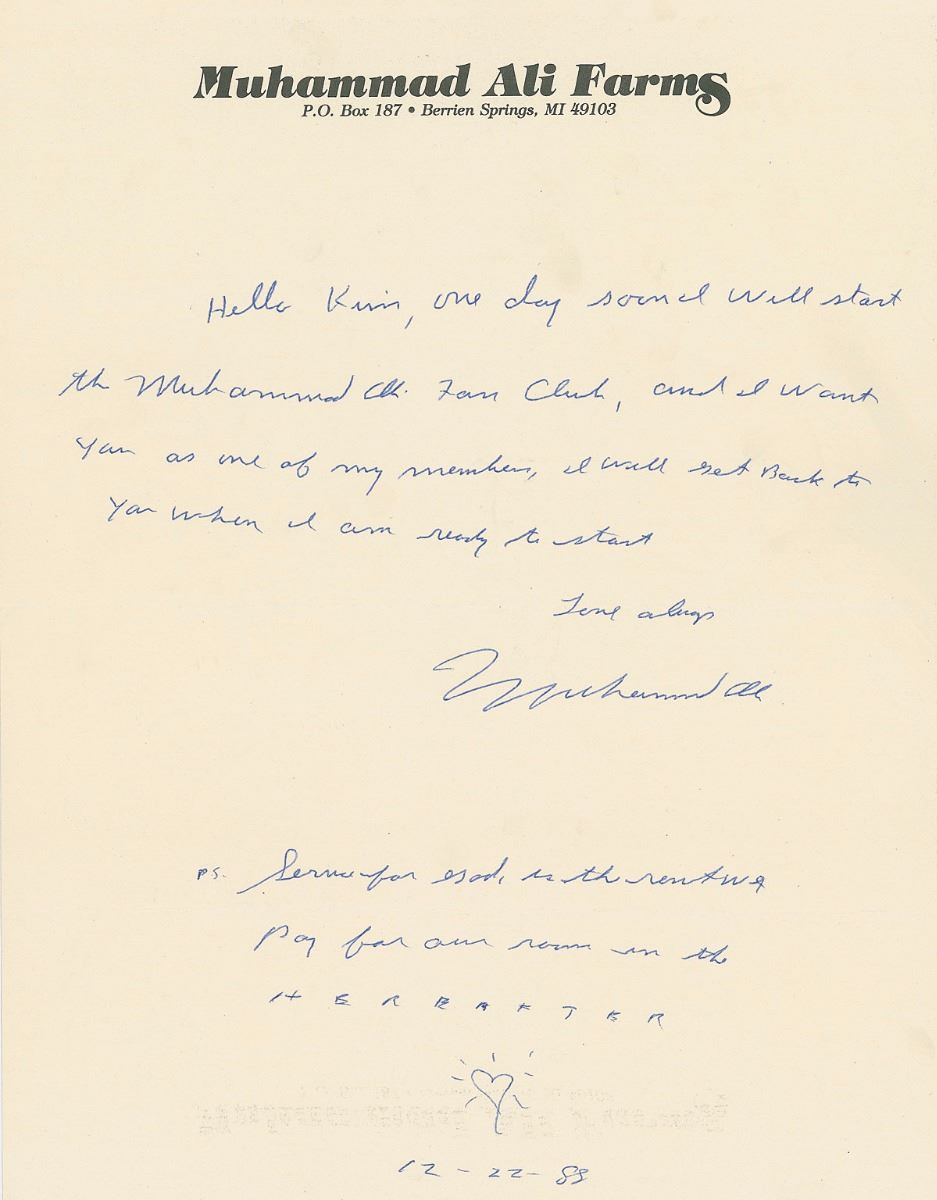 Muhammad Ali Farms
P.O. Box 187 • Berrien Springs, MI 49103
Hello Kim, one day soon I will start
the Muhammad Ali Fan Club, and I want
you as one of my members, I will get Back to
you when I am ready to start
Love always
Muhammad Ali
PS. Service for God, is the rent we
Pay for our room in the
HEREAFTER
12-22-88